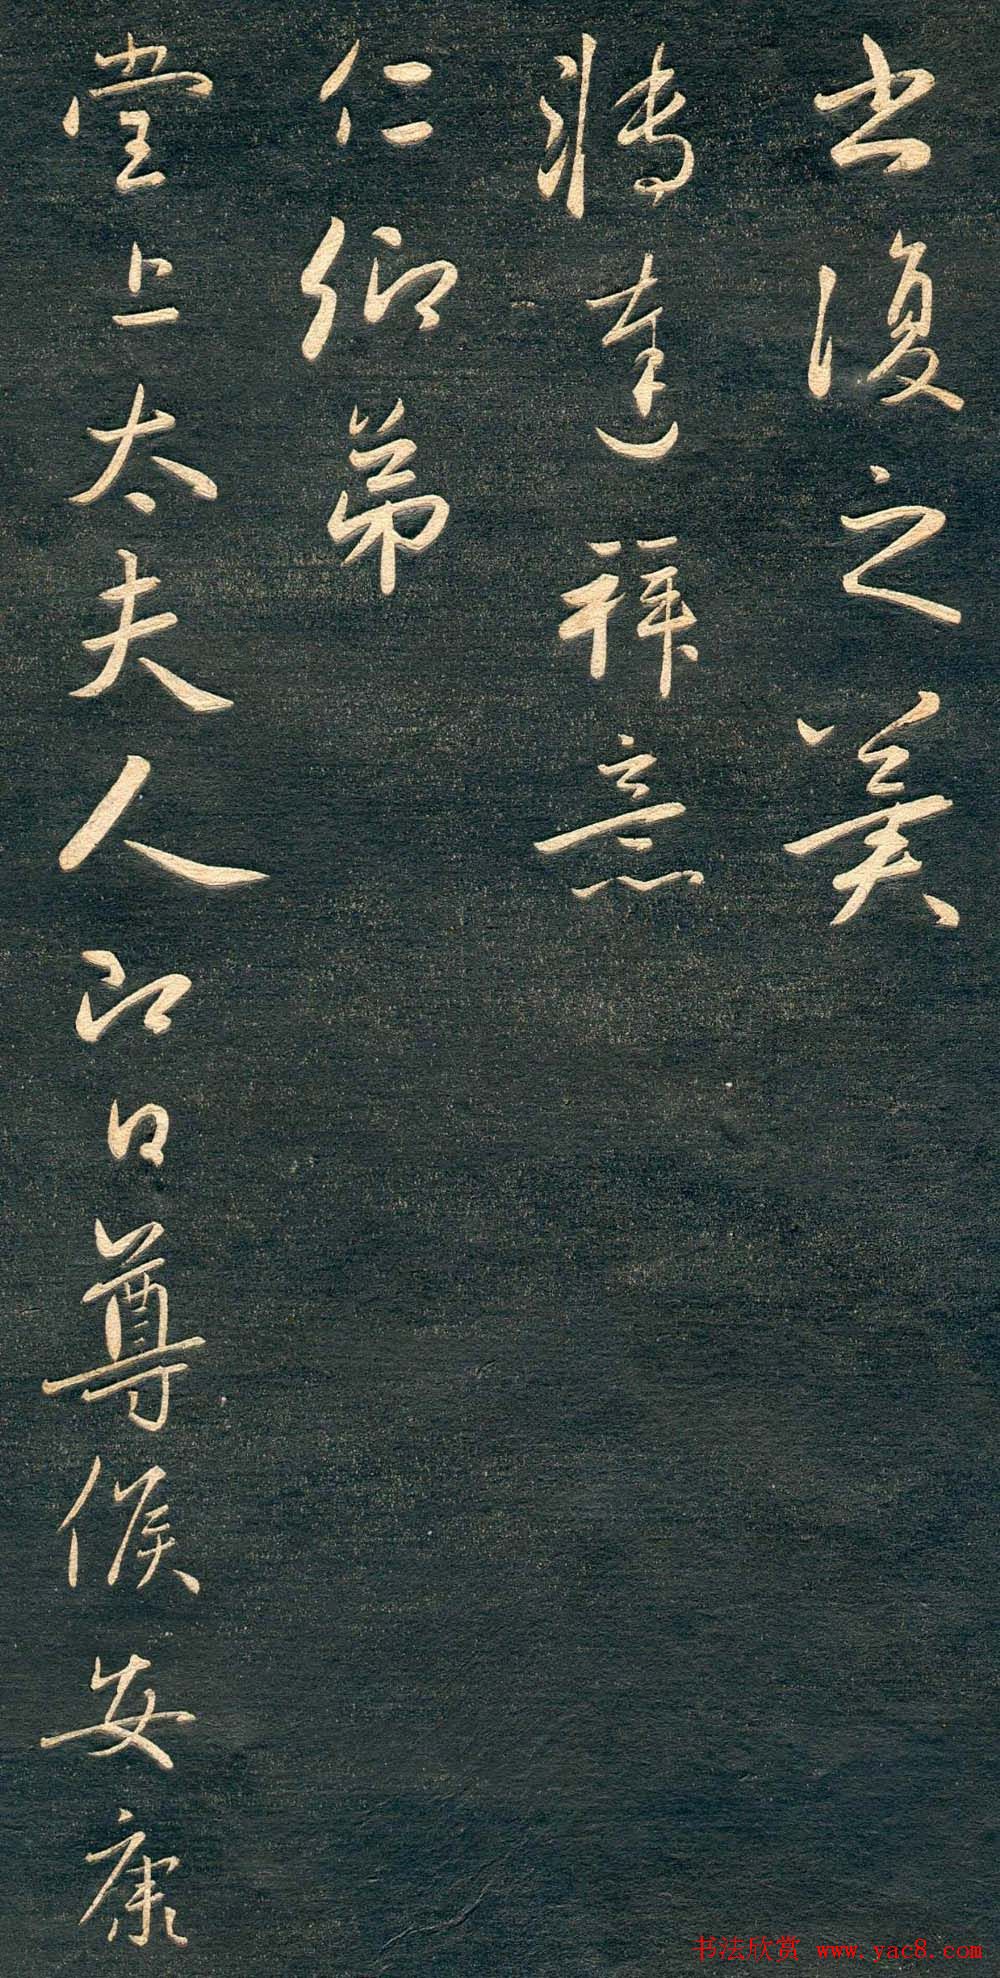 復之冀
轉達拜意
仁卿弟
堂上太夫人即日尊候安康
书法欣赏 www.yac8.com